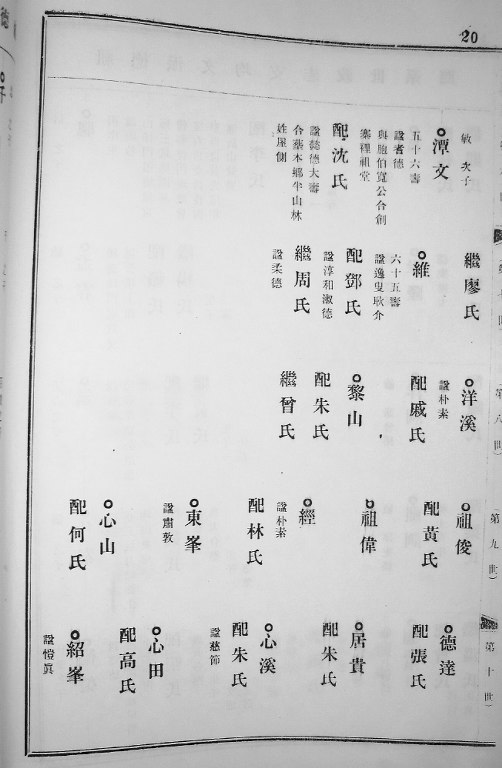 20
敏 次子
潭文
五十六壽
諡耆德
與胞伯寬公合創
寨裡祖堂
配沈氏
諡懿德大壽
合墓本鄉半山林
姓屋側
繼廖氏
維
六十五壽
諡逸叟耿介
配鄧氏
諡淳和淑德
繼周氏
諡柔德
第八世
洋溪
諡朴素
配戚氏
黎山
配朱氏
繼曾氏
第九世
祖俊
配黃氏
祖偉
經
諡朴素
配林氏
東峯
諡肅敦
心山
配何氏
第十世
德達
配張氏
居貴
配朱氏
心溪
配朱氏
諡慈節
心田
配高氏
紹峯
諡愷眞